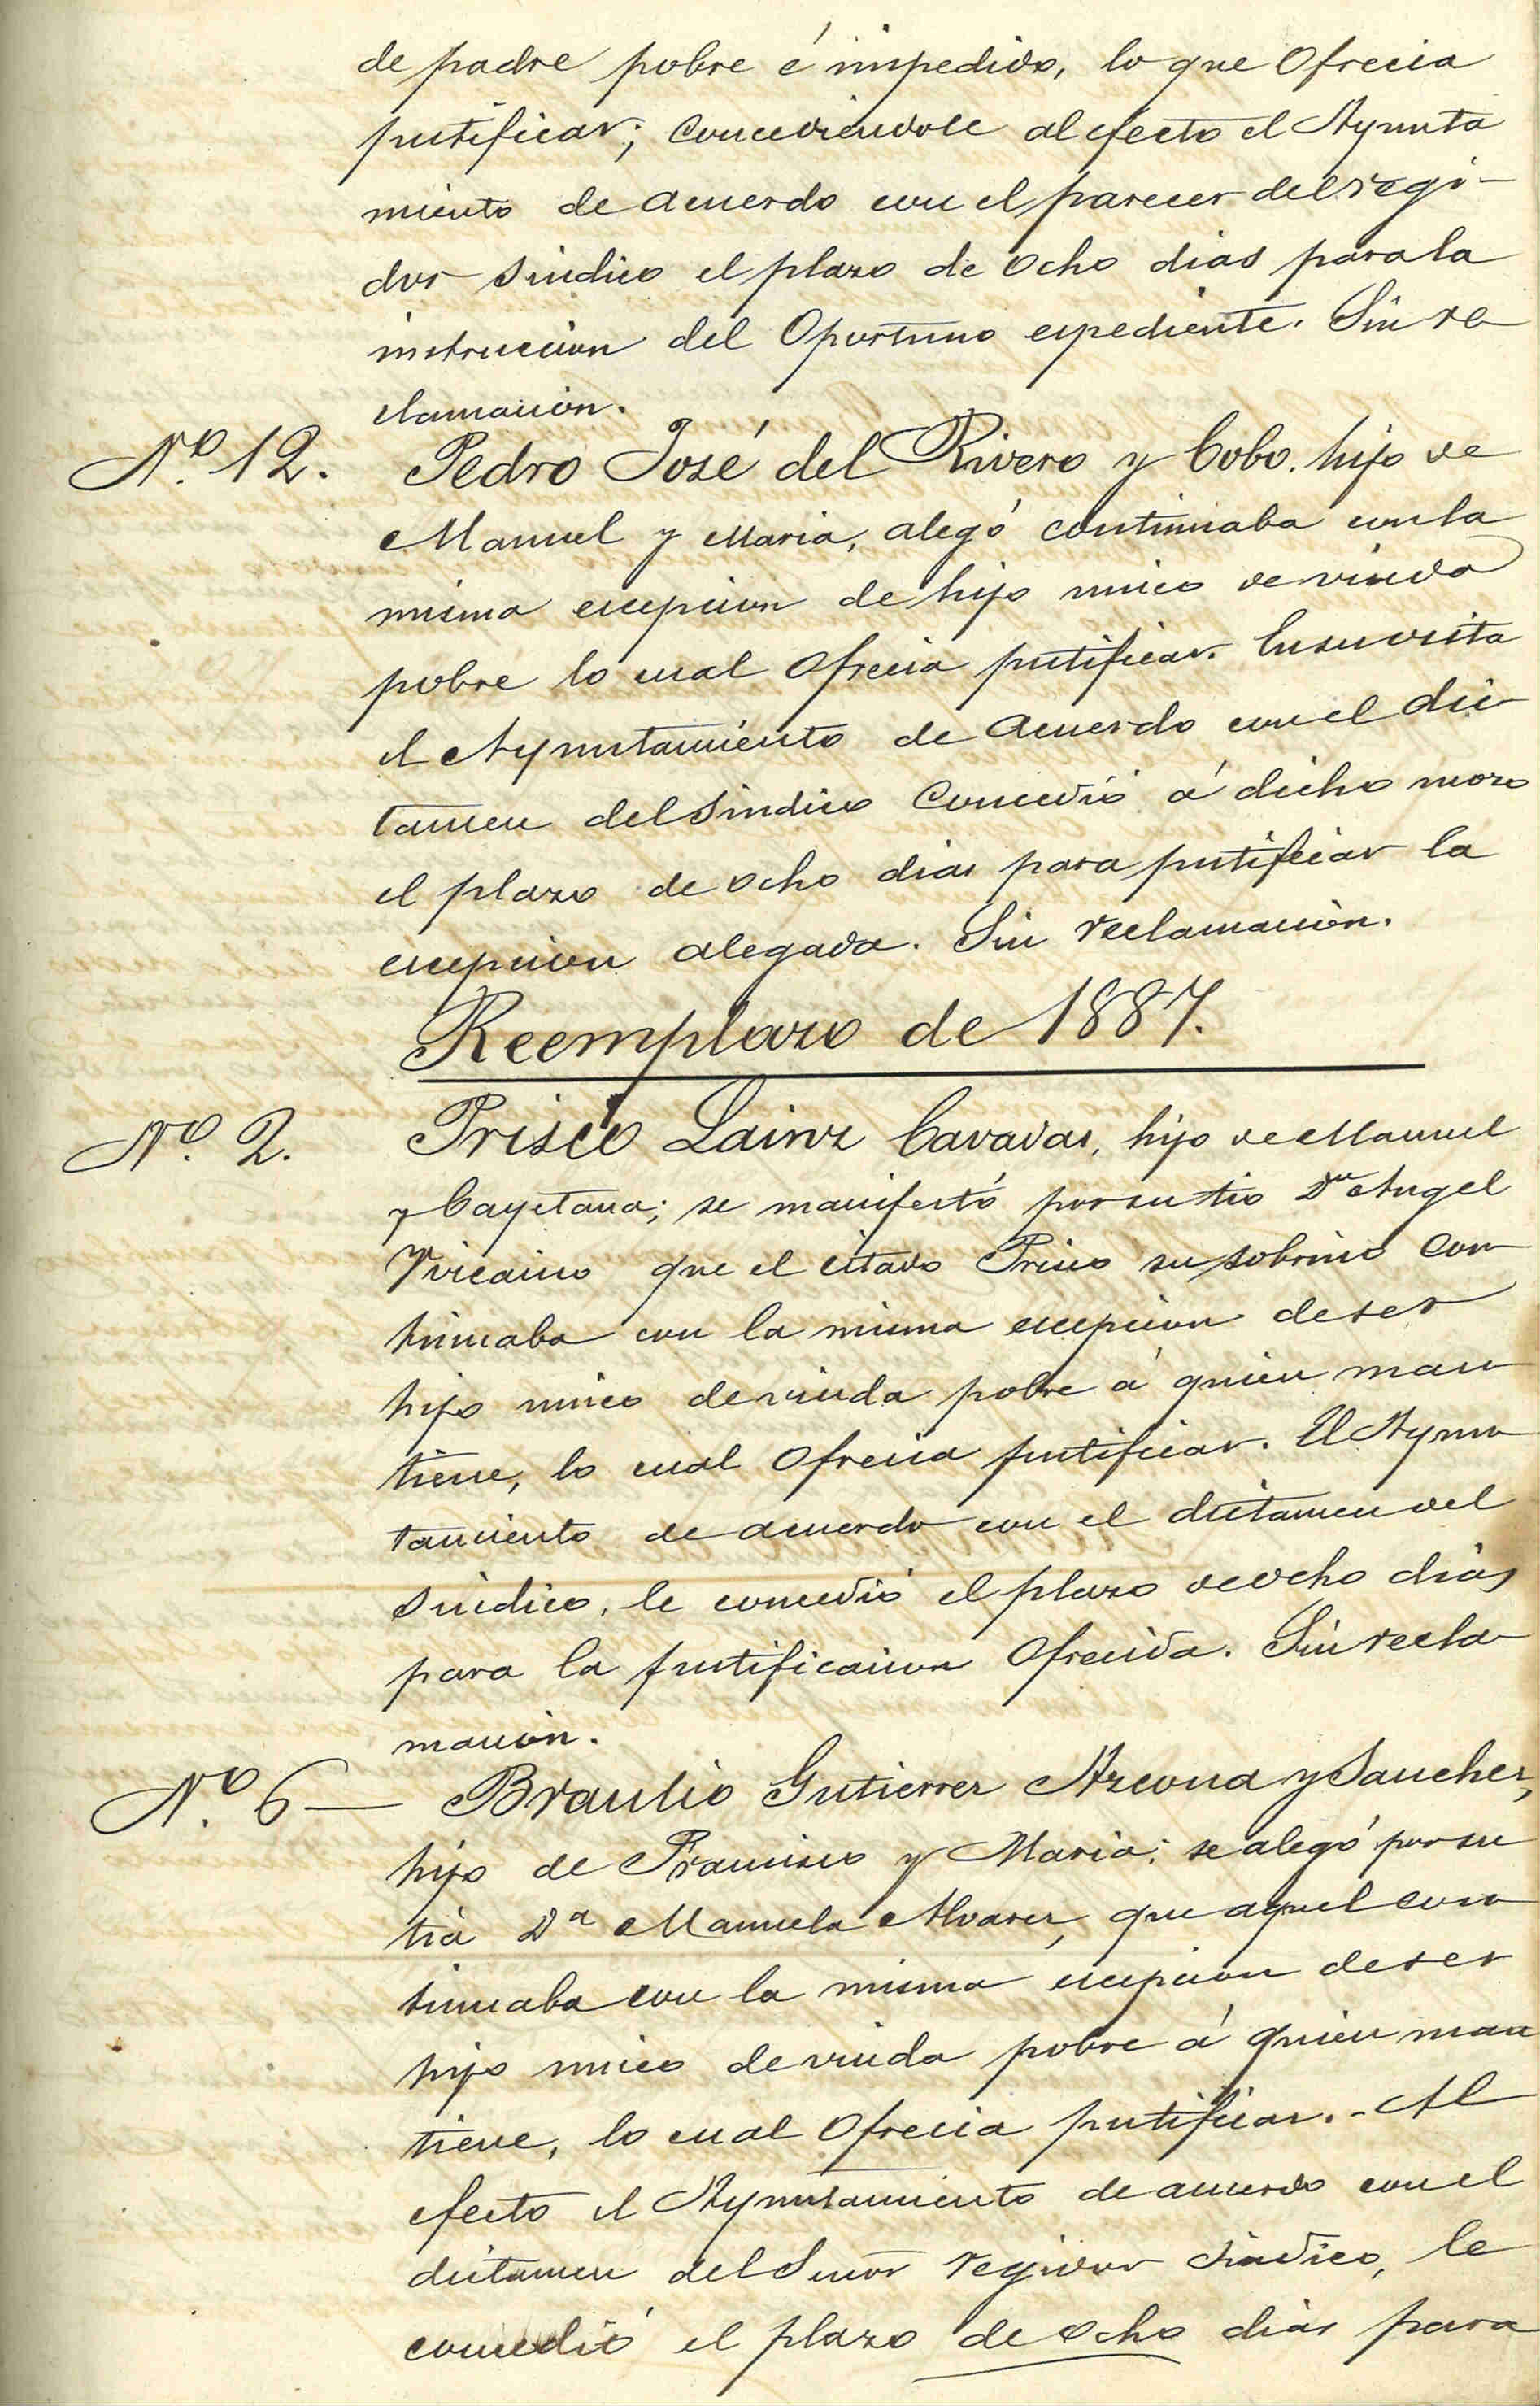 de padre pobre é impedido, lo que Ofrecia
justificar; concediendole al efecto el Ayunta
miento de acuerdo con el parecer del regi-
dor sindico el plazo de ocho dias para la
instruccion del Oportuno espediente. Sin re
clamación.
Nº 12. Pedro José del Rivero y Cobo. hijo de
Manuel y Maria, alegó continuaba con la
misma escepcion de hijo unico de viuda
pobre lo cual Ofrecia justificar. En su vista
el Ayuntamiento de acuerdo con el dic
tamen del Sindico Concedió á dicho mozo
el plazo de ocho dias para justificar la
escepcion alegada. Sin reclamación.
Reemplazo de 1887.
Nº 2. Prisco Lainz Cavadas, hijo de Manuel
y Cayetana; se manifestó por su tio Dn Angel
Vizcaino que el citado Prisco su sobrino con
tinuaba con la misma escepcion de ser
hijo unico de viuda pobre á quien man
tiene, lo cual Ofrecia justificar. El Ayun
tamiento de acuerdo con el dictamen del
Sindico, le concedió el plazo de ocho dias
para la justificacion Ofrecida. Sin recla
mación.
Nº 6 — Braulio Gutierrez Azcona y Sanchez,
hijo de Francisco y Maria; se alegó por su
tia Dª Manuela Alvarez, que aquel con
tinuaba con la misma escepcion de ser
hijo unico de viuda pobre á quien man
tiene, lo cual Ofrecia justificar. - Al
efecto el Ayuntamiento de acuerdo con el
dictamen del Señor regidor Sindico, le
concedió el plazo de ocho dias para